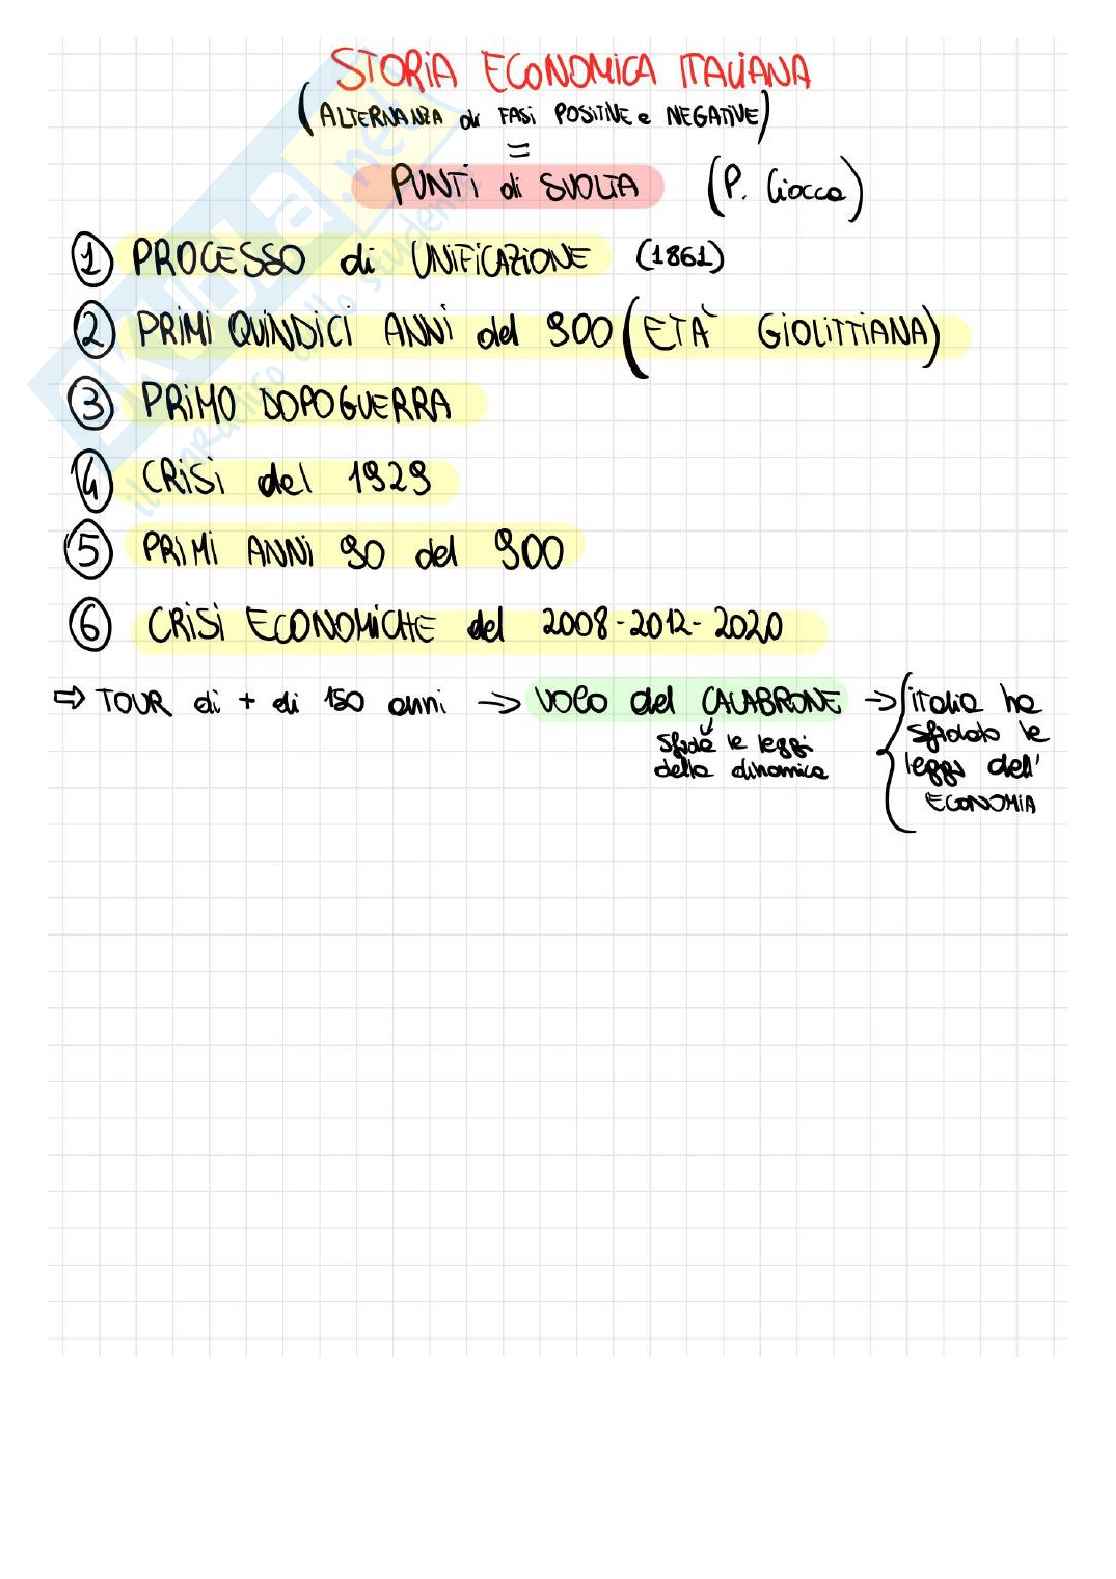 STORIA ECONOMICA ITALIANA
(ALTERNANZA di FASI POSITIVE e NEGATIVE)
=
PUNTI di SVOLTA (P. Ciocca)
1 PROCESSO di UNIFICAZIONE (1861)
2 PRIMI QUINDICI ANNI del 900 (ETÀ GIOLITTIANA)
3 PRIMO DOPOGUERRA
4 CRISI del 1929
5 PRIMI ANNI 90 del 900
6 CRISI ECONOMICHE del 2008-2012-2020
⇒ TOUR di + di 150 anni → VOLO del CALABRONE → italia ha
sfidato le
sfida le leggi
della dinamica
leggi dell'
ECONOMIA
SKUOLA.net
il paradiso dello studente